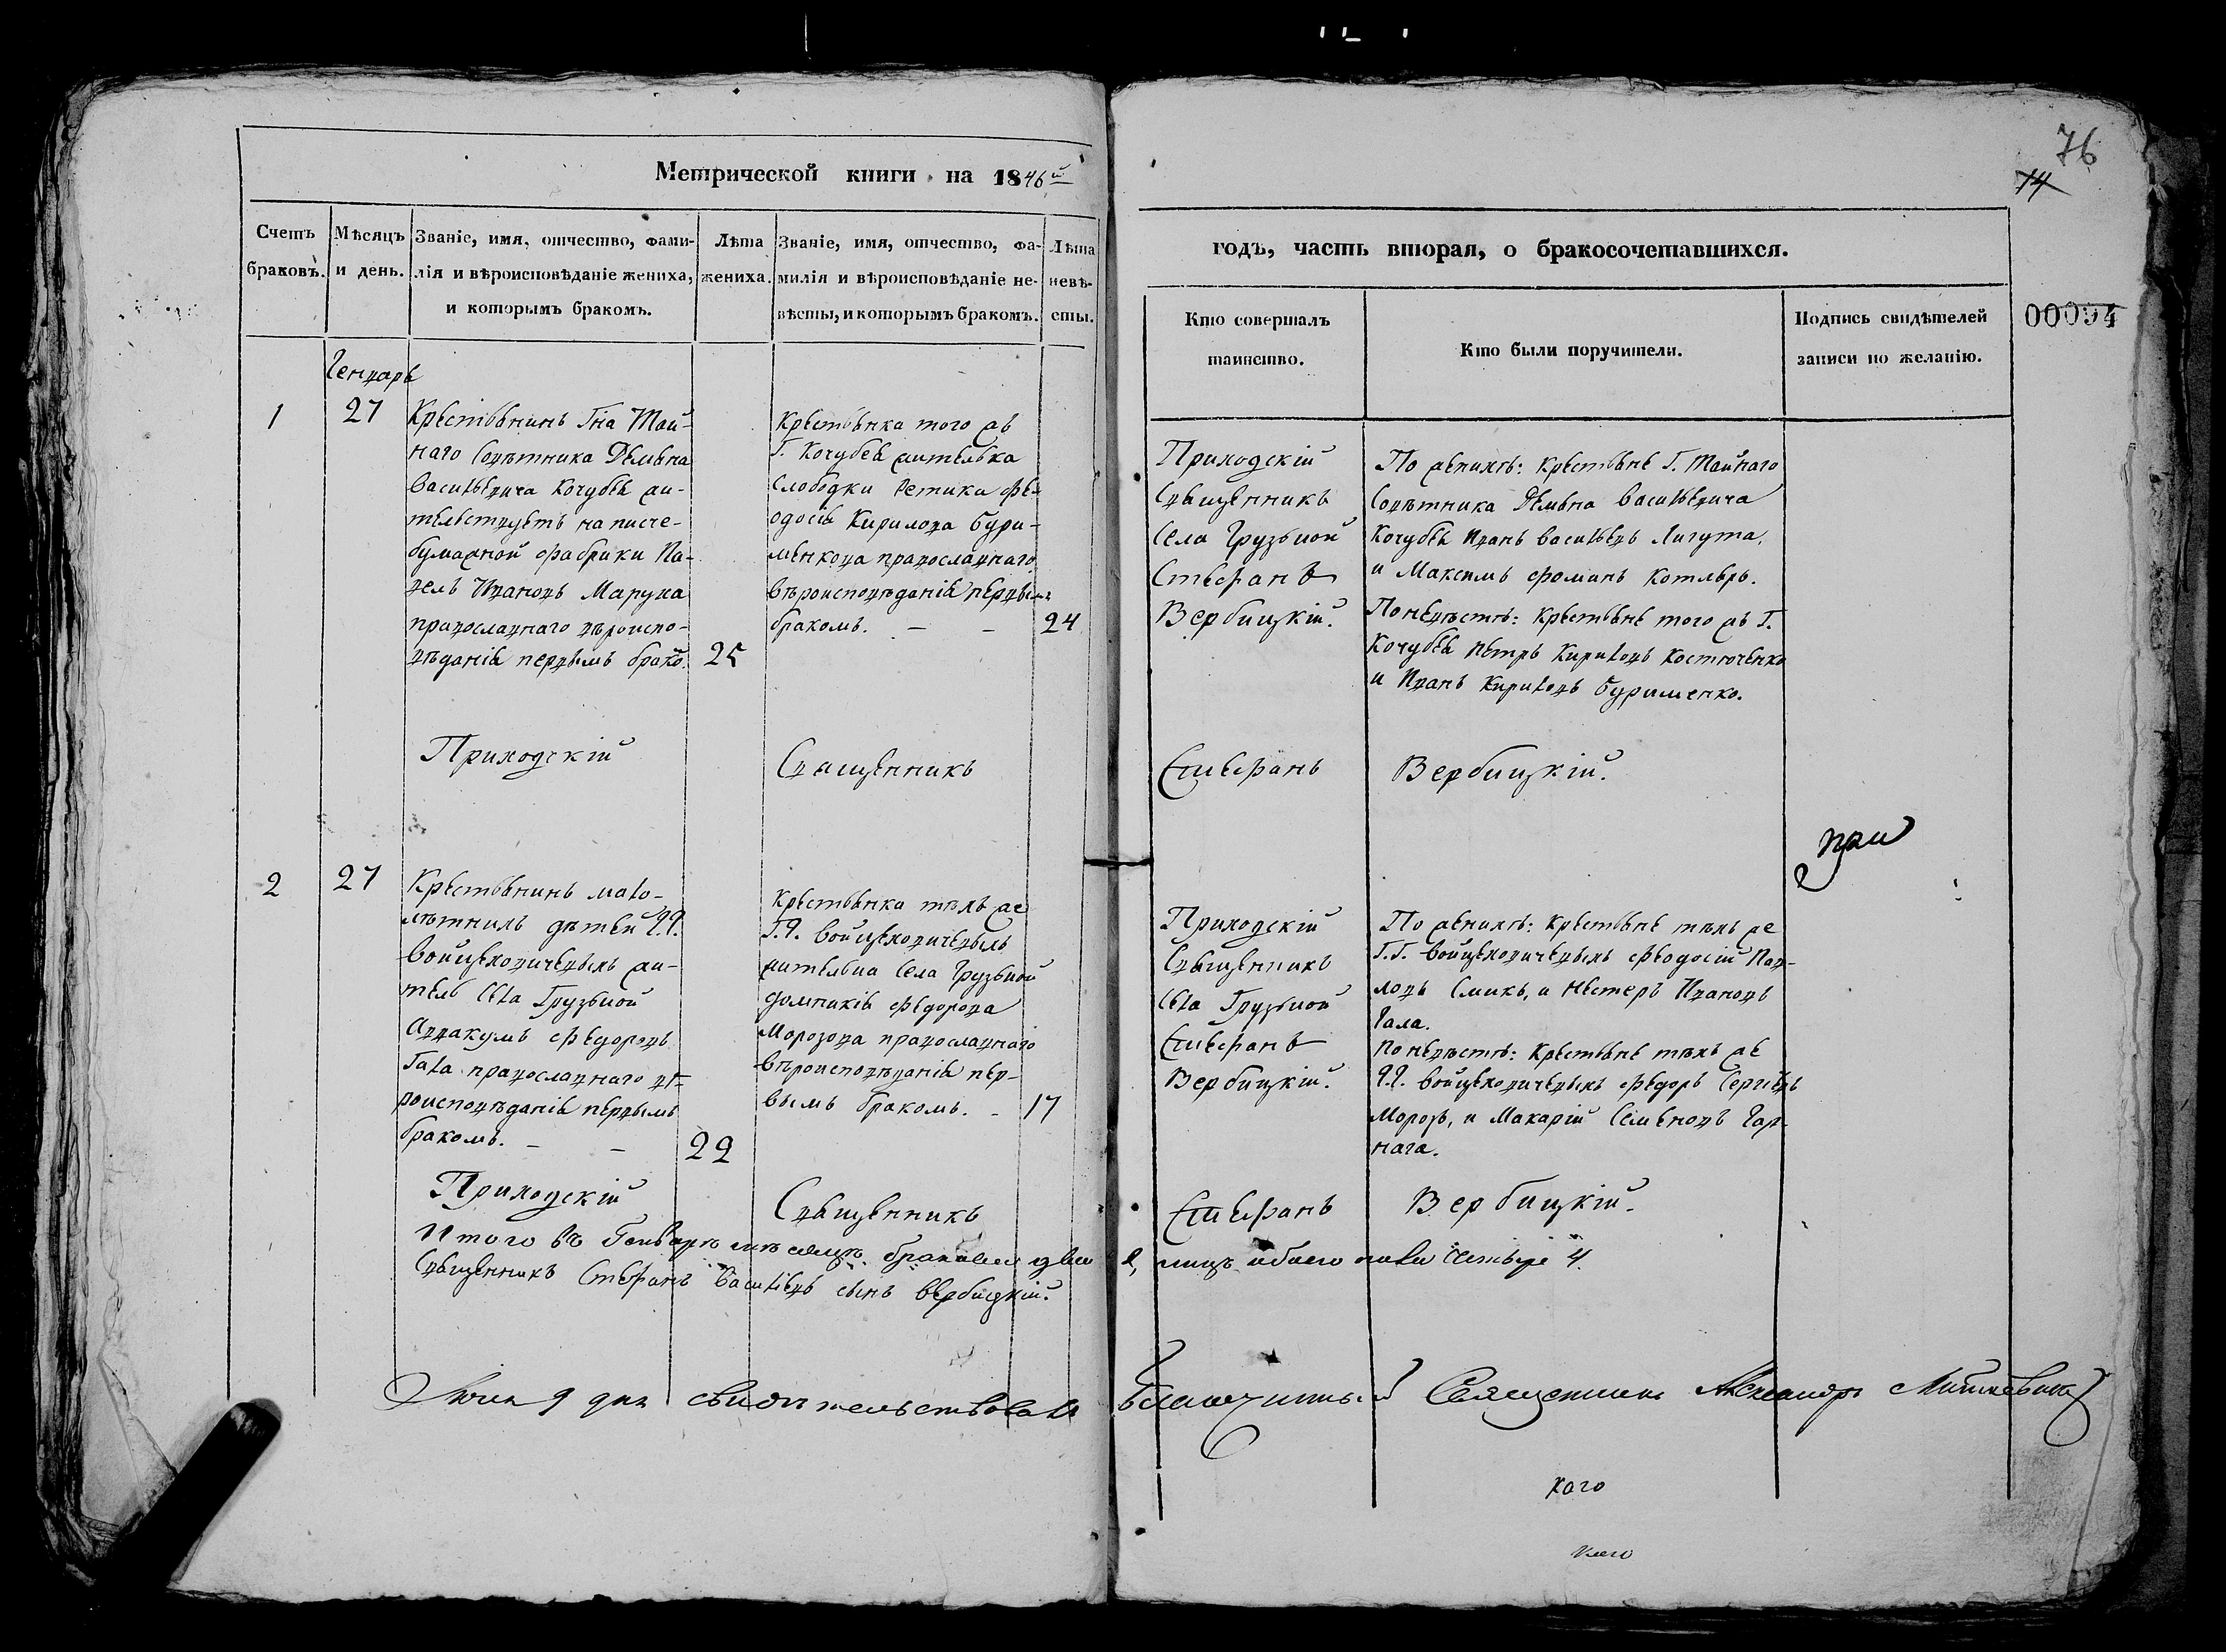 76
14
Метрической книги на 1846й
годъ, часть вторая, о бракосочетавшихся.
00094
Счетъ браковъ.
Мѣсяцъ и день.
Званіе, имя, отчество, фами-
лія и вѣроисповѣданіе жениха,
и которымъ бракомъ.
Лѣта жениха.
Званіе, имя, отчество, фа-
милія и вѣроисповѣданіе не-
вѣсты, и которымъ бракомъ.
Лѣта невѣ-
сты.
Кто совершалъ
таинство.
Кто были поручители.
Подпись свидѣтелей
записи по желанію.
Генварь
1
27
Крестьянинъ Гна Тай-
наго Совѣтника Демьяна
Васильевича Кочубея жи-
тельствуетъ на писче-
бумажной фабрики Па-
велъ Ивановъ Маруха
православнаго вѣроиспо-
вѣданія первымъ брако.
25
Крестьянка того жъ
Г. Кочубея жителька
Слободки Ретики Фе-
одосія Кирилова Бури-
менкова православнаго
вѣроисповѣданія первымъ
бракомъ. — —
24
Приходскій
Священникъ
Села Грузской
Стефанъ
Вербицкій.
По женихѣ: Крестьяне Г. Тайнаго
Совѣтника Демьяна Васильевича
Кочубея Иванъ Васильевъ Лигута,
и Максимъ Фоминъ Котляръ.
По невѣстѣ: Крестьяне того жъ Г.
Кочубея Петръ Кириловъ Костюченко
и Иванъ Кириловъ Буrименко.
Приходскій Священникъ Стефанъ Вербицкій.
при
2
27
Крестьянинъ мало-
лѣтнихъ дѣтей Г.Г.
Войцеховичевыхъ жи-
тель Села Грузской
Аввакумъ Федоровъ
Гала православнаго вѣ-
роисповѣданія первымъ
бракомъ. — —
22
Крестьянка тѣхъ же
Г.Г. Войцеховичевыхъ
жителька Села Грузской
Домникія Федорова
Морозова православнаго
вѣроисповѣданія пер-
вымъ бракомъ. -
17
Приходскій
Священникъ
Села Грузской
Стефанъ
Вербицкій.
По женихѣ: Крестьяне тѣхъ же
Г.Г. Войцеховичевыхъ Феодосій Пав-
ловъ Смикъ, и Нестеръ Ивановъ
Гала.
По невѣстѣ: Крестьяне тѣхъ же
Г.Г. Войцеховичевыхъ Федоръ Сергіевъ
Морозъ, и Макарій Семеновъ Гар-
нага.
Приходскій Священникъ Стефанъ Вербицкій.
Итого въ Генварѣ мѣсяцѣ браковъ два 2, лицъ обоего пола четыре 4.
Священникъ Стефанъ Васильевъ сынъ Вербицкій.
Іюня 9 дня свидѣтельствовалъ благочинный Священникъ Александръ
каго